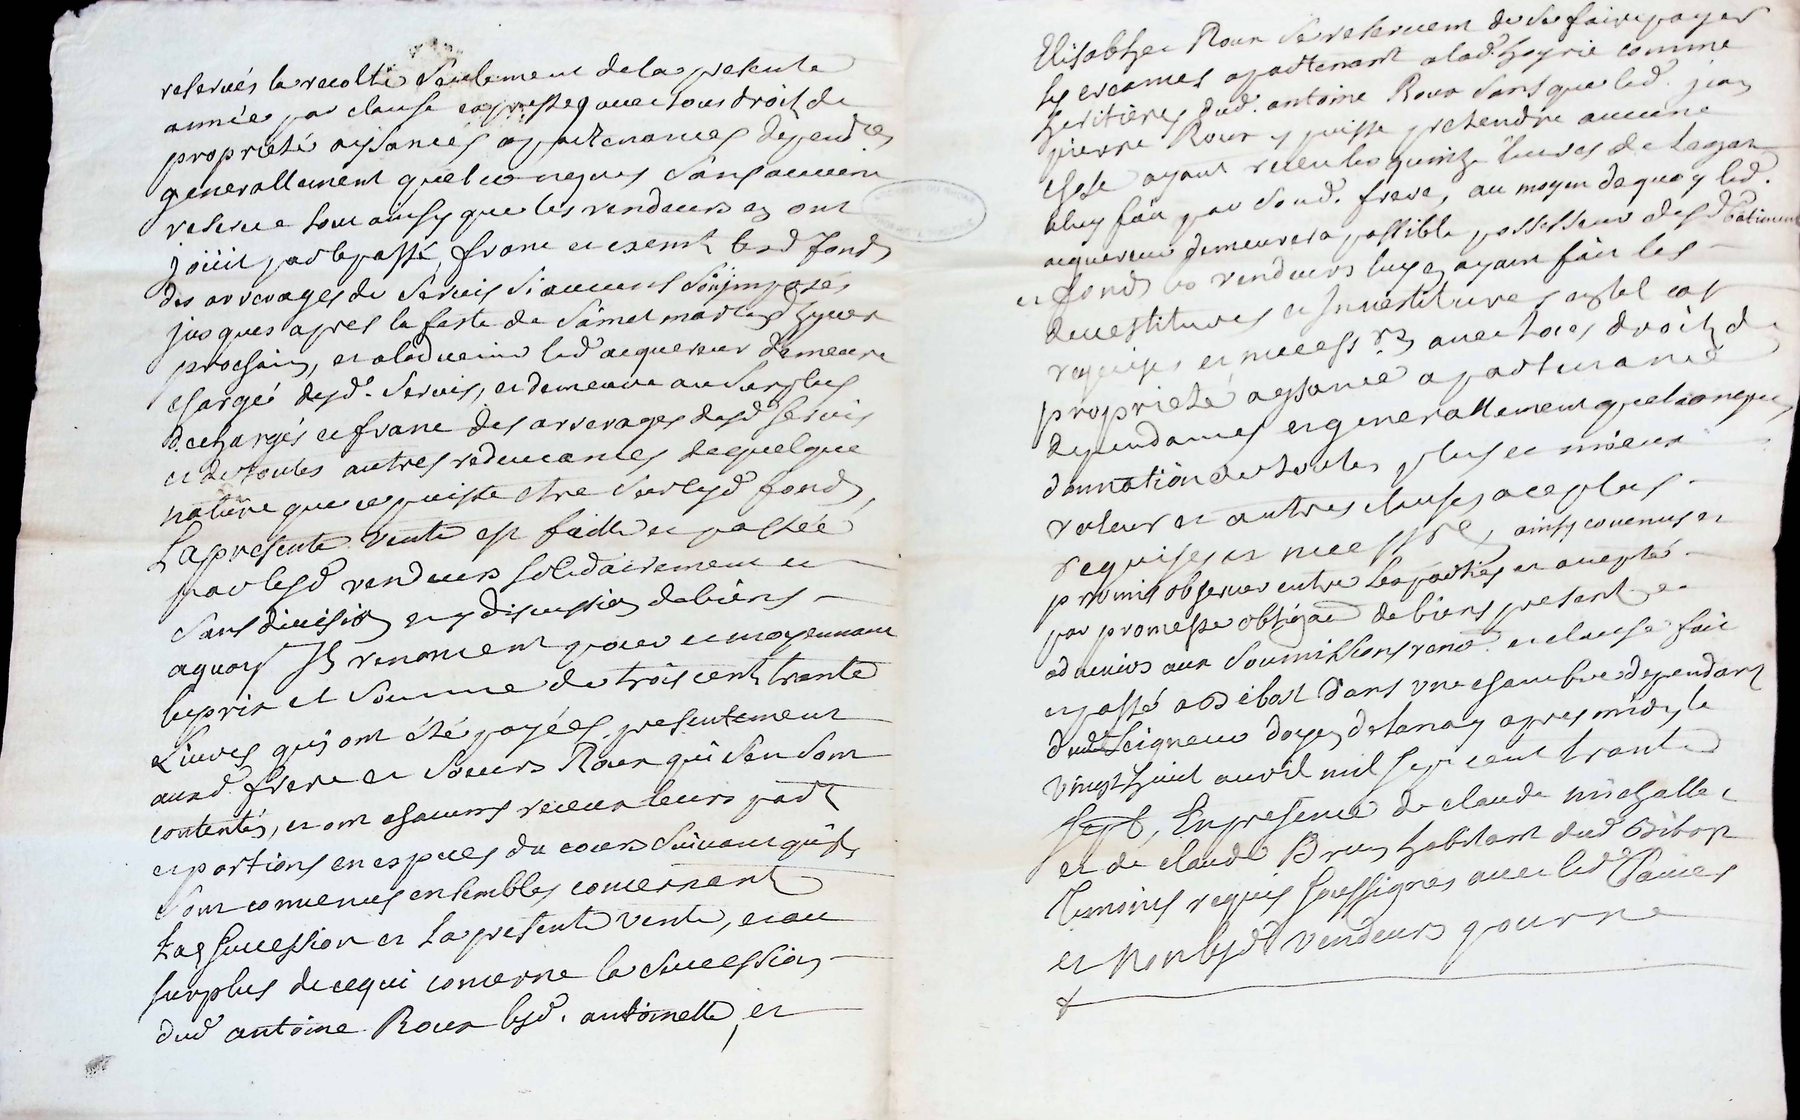 reservés la recolte Seulement de la presente
année par clause expresse avec tous droit de
proprieté aysances apartenances depend.ces
generallement quelconques sans aucune
reserve tout ainsy que les vendeurs en ont
joüit par le passé, franc et exempt lesd fonds
des arrerages de servis si aucuns sont imposés
jusques apres la feste de Sainct martin d'hyver
prochain, et a ladvenir led acquereur demeure
chargé desd. Servis, et demeure au surplus
dechargés et franc des arrerages desd Servis
et de toutes autres redevances de quelque
nature que ce puisse etre sur lesd fonds,
La presente vente est faitte et passée
par lesd vendeurs solidairement et
sans division ny discussion de biens
a quoy Ils renoncent pour et moyennant
le prix et Somme de trois cent trente
Livres qui ont été payées presentement
auxd. frere et Soeurs Roux qui s'en sont
contentés, et ont chacuns receux leurs part
et portions en espices du cours Suivant qu'ils
sont convenus ensembles concernant
Lad Succession et La presente vente, et au
surplus de ce qui concerne la Succession
dud antoine Roux lesd. antoinette, et
Elisabethe Roux se reservent de se faire payer
les creances apartenant a lad hoyrie comme
heritieres dud. antoine Roux sans que led. jean
pierre Roux y puisse pretendre aucune
chose ayant receu les quinze livres de Legat
a luy fait par Sond. frere, au moyen de quoy led.
acquereur demeurera paisible possesseur desd batiment
et fonds les vendeurs luy en ayant fait les
devestitures et Investitures en tel cas
requises et necess.res avec tous droits de
proprieté aysance apartenance
dependances et generallement quelconques
donnation de toutes plus et mieux
valeur et autres clauses a ce plus
requises et necess.re, ainsy convenus et
promis observer entre Les parties et accepté
par promesse obligaon de biens present et
advenirs aux soumissions renon. et clause fait
et passé a Dibost dans une chambre dependant
dud Seigneur doyen de tanay apres midy le
vingt huict avril mil sept cent trante
sept, En presence de claude michalle
et de claude Brun habitant dud Dibost
temoins requis soussignes avec led
et Non lesd vendeurs pour ne